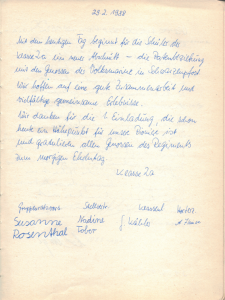 29.2. 1988
Mit dem heutigen Tag beginnt für die Schüler der
Klasse 2a ein neuer Abschnitt - die Patenbeziehung
mit den Genossen der Volksmarine in
Wir hoffen auf eine gute Zusammenarbeit und
vielfältige gemeinsame Erlebnisse.
Wir danken für die 1. Einladung, die schon
heute ein Höhepunkt für unsere Pioniere ist
und gratulieren allen Genossen des Regiments
zum morgigen Ehrentag.
Klasse 2a
Susanne Nadine
Rosenthal Tabor